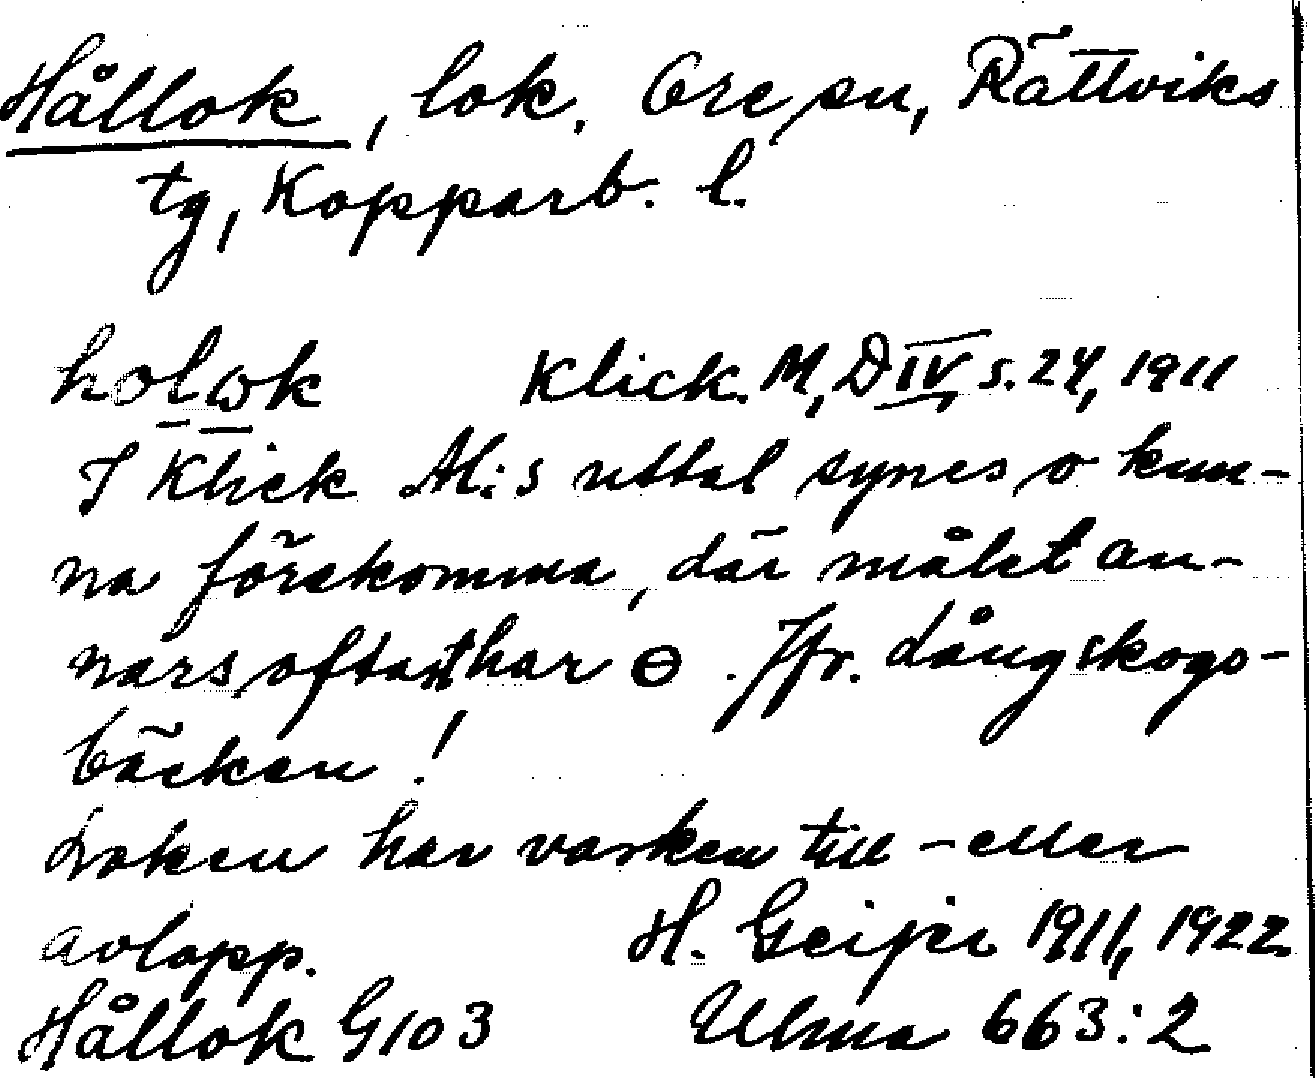 Hållok, lok. Ore sn, Rättviks
tg, Kopparb. l.
holωk Klick. M, D IV s. 24, 1911
I Klick M:s uttal synes o kun-
na förekomma, där målet an-
nars oftast har ɵ. Jfr. Långskogs-
bäcken!
Loken har varken till- eller
avlopp. H. Geijer 1911, 1922
Hållok G103 Ulma 663:2